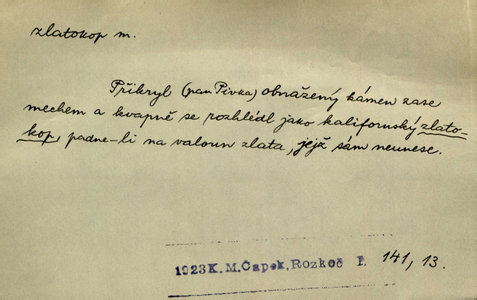 zlatokop m.
Přikryl (pan Pivka) obnažený kámen zase
mechem a kvapně se rozhlédl jako kalifornský zlato-
kop, padne-li na valoun zlata, jejž sám neunese.
1923 K. M. Čapek, Rozkoč I. 141, 13.